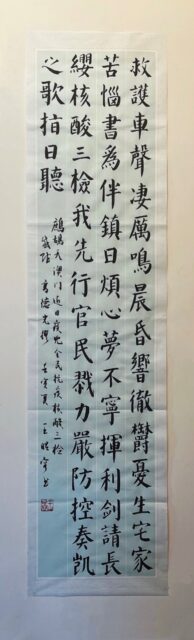 救護車聲淒厲鳴晨昏響徹欝憂生宅家
苦惱書為伴鎮日煩心夢不寧揮利劍請長
纓核酸三檢我先行官民戮力嚴防控奏凱
之歌指日聽
鷓鴣天澳門近日疫全民抗疫核酸三檢
壬寅夏書